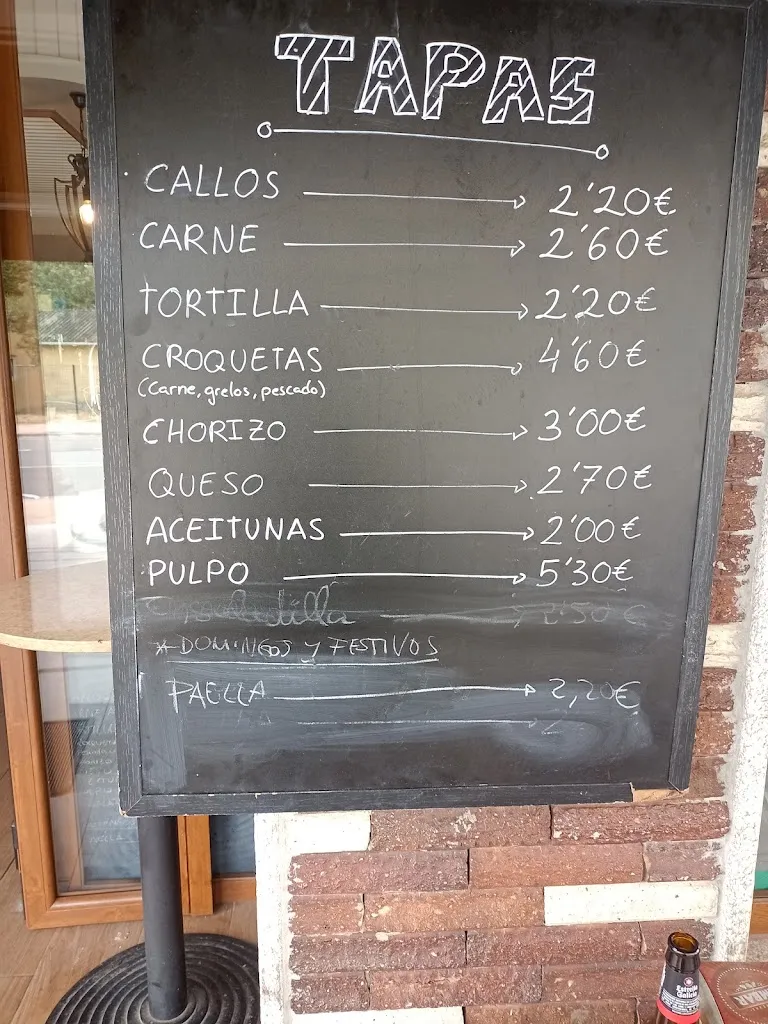 TAPAS
CALLOS 2'20€
CARNE 2'60€
TORTILLA 2'20€
CROQUETAS 4'60€
(Carne, grelos, pescado)
CHORIZO 3'00€
QUESO 2'70€
ACEITUNAS 2'00€
PULPO 5'30€
2'50€
* DOMINGOS Y FESTIVOS
PAELLA 2,20€
Estrella
Galicia